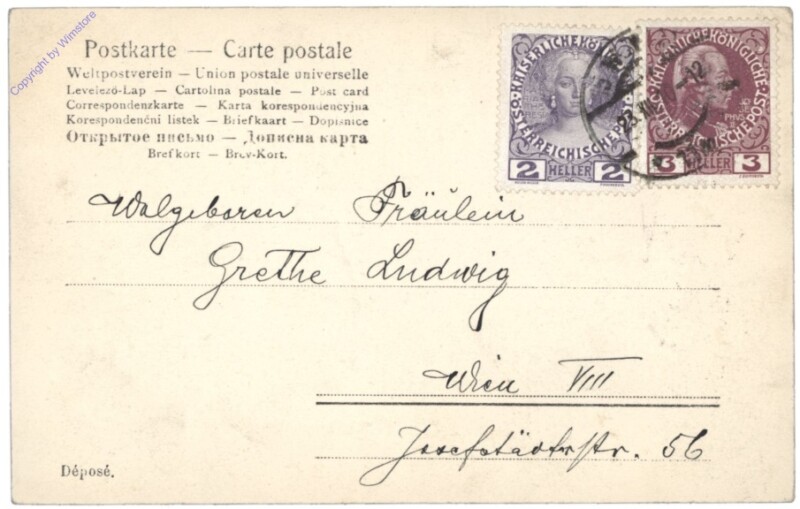 Copyright by Wimstore
Postkarte — Carte postale
Weltpostverein — Union postale universelle
Levelező-Lap — Cartolina postale — Post card
Correspondenzkarte — Karta korespondencyjna
Korespondenční listek — Briefkaart — Dopisnice
Открытое письмо — Дописна карта
Brefkort — Brev-Kort.
KAISERLICHE KÖN
ÖSTERREICHISCHE P
2 HELLER 2
KÖNIGLICHE
ÖSTERREICHISCHE POST
3 HELLER 3
Wolgeboren Fräulein
Grethe Ludwig
Wien VIII
Josefstädterstr. 56
Déposé.